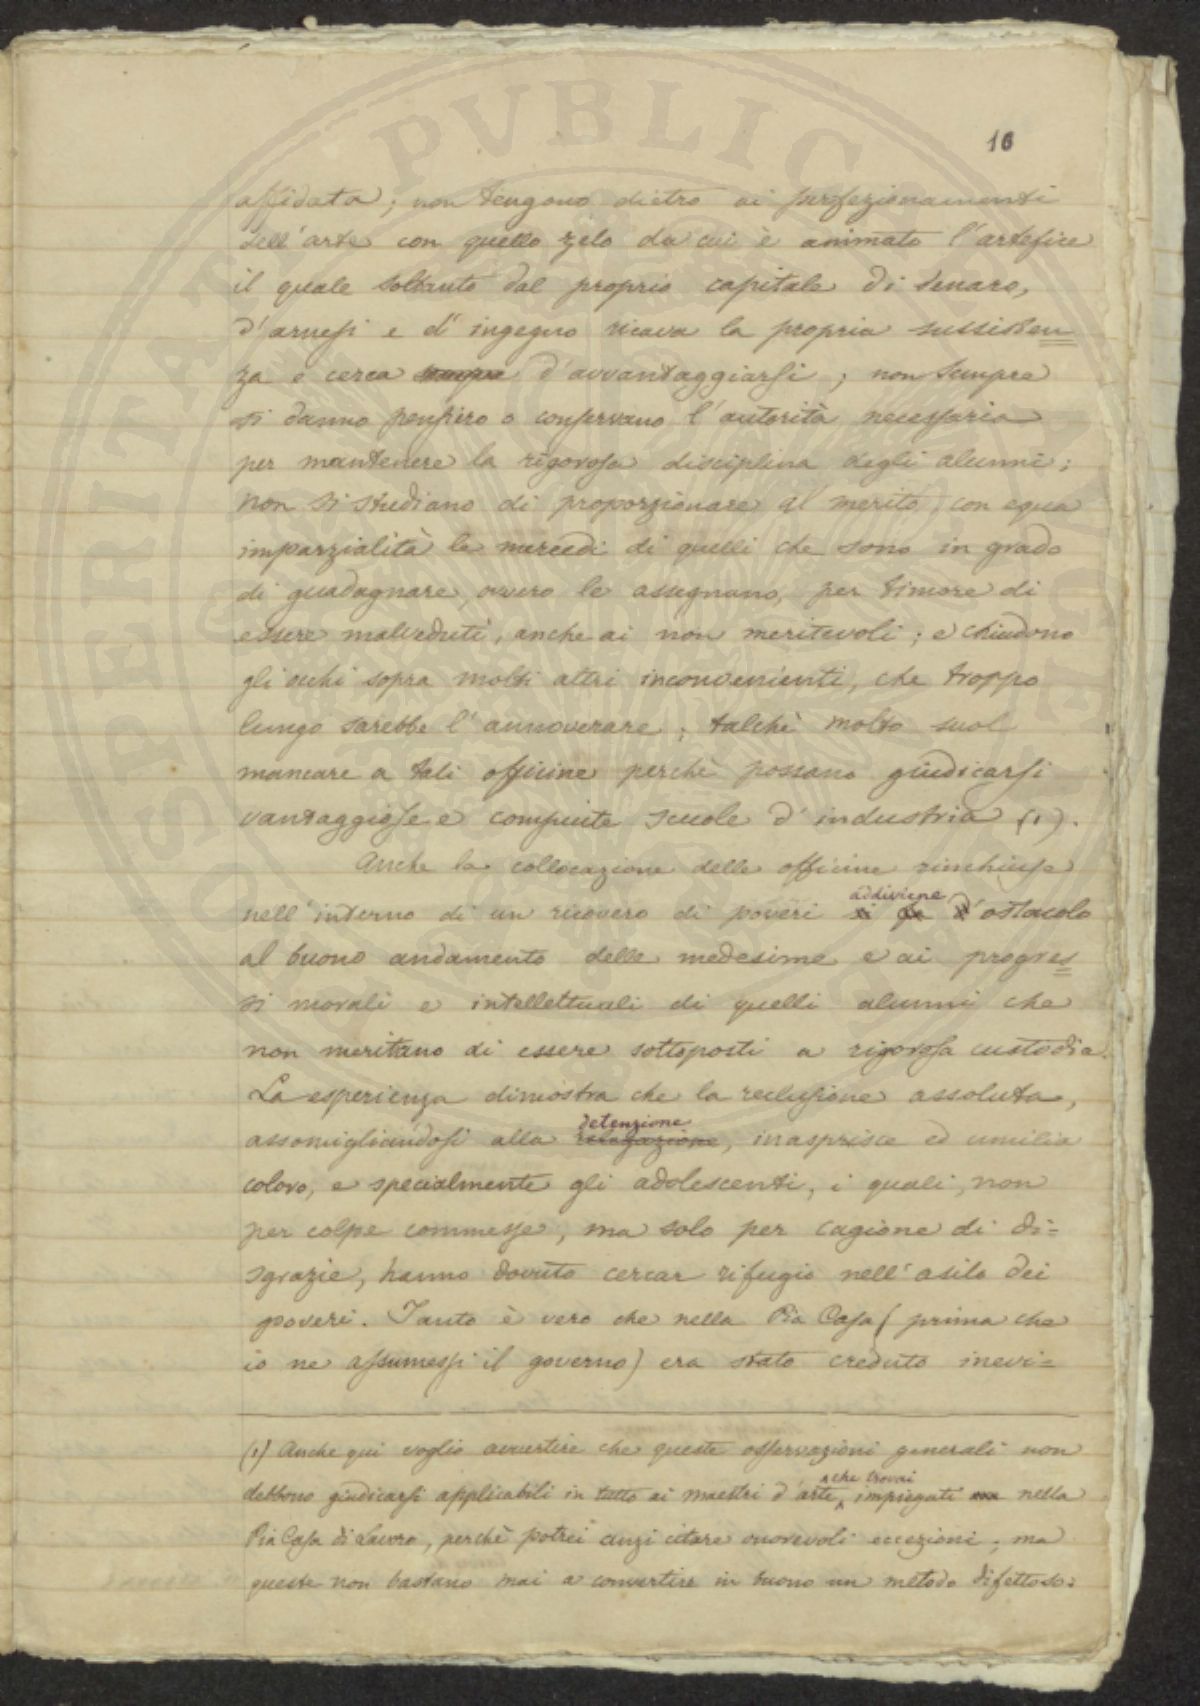 16
affidata; non tengono dietro ai perfezionamenti
dell'arte con quello zelo da cui è animato l'artefice
il quale soltanto dal proprio capitale di denaro,
d'arnesi e d'ingegno ricava la propria sussisten=
za e cerca sempre d'avvantaggiarsi; non sempre
si danno pensiero o conservano l'autorità necessaria
per mantenere la rigorosa disciplina degli alunni;
non si studiano di proporzionare al merito con equa
imparzialità le mercedi di quelli che sono in grado
di guadagnare, ovvero le assegnano, per timore di
essere malveduti, anche ai non meritevoli; e chiudono
gli occhi sopra molti altri inconvenienti, che troppo
lungo sarebbe l'annoverare; talchè molto suol
mancare a tali officine perchè possano giudicarsi
vantaggiose e compiute scuole d'industria (1).
Anche la collocazione delle officine rinchiuse
addiviene
nell'interno di un ricovero di poveri si fa d'ostacolo
al buono andamento delle medesime e ai progres=
si morali e intellettuali di quelli alunni che
non meritano di essere sottoposti a rigorosa custodia.
La esperienza dimostra che la reclusione assoluta,
detenzione
assomigliandosi alla relegazione, inasprisce ed umilia
coloro, e specialmente gli adolescenti, i quali, non
per colpe commesse, ma solo per cagione di di=
sgrazie, hanno dovuto cercar rifugio nell'asilo dei
poveri. Tanto è vero che nella Pia Casa (prima che
io ne assumessi il governo) era stato creduto inevi=
(1) Anche qui voglio avvertire che queste osservazioni generali non
che trovai
debbono giudicarsi applicabili in tutto ai maestri d'arte, impiegati nella
Pia Casa di Lavoro, perchè potrei anzi citare onorevoli eccezioni; ma
queste non bastano mai a convertire in buono un metodo difettoso.
PVBLICAE
PROSPERITATI
AVGENDAE